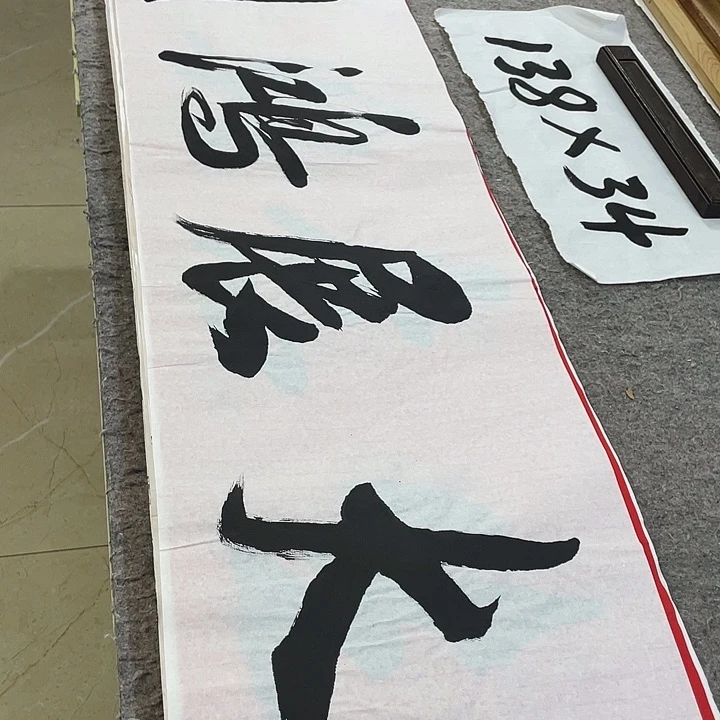 大展鸿
138×34